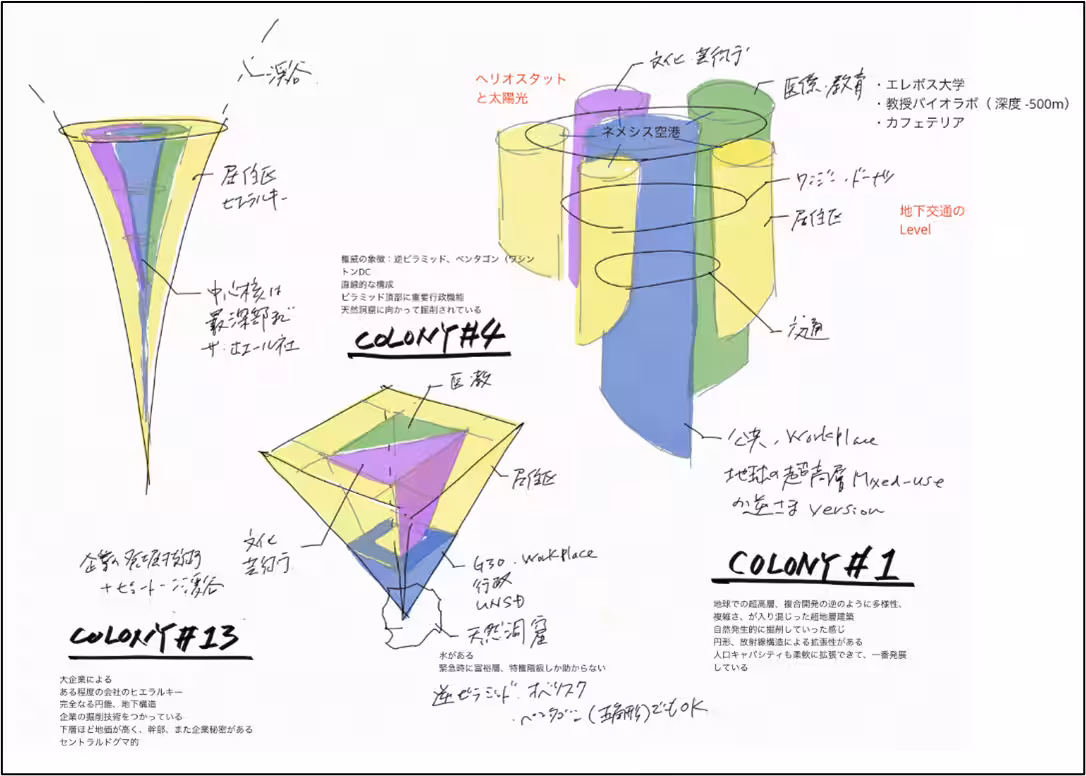 渓谷
居住区
ヒエラルキー
中心核は
最深部まで
ザ・ホエール社
企業の発掘技術
COLONY#13
大企業による
ある程度の会社のヒエラルキー
完全なる円錐、地下構造
企業の掘削技術をつかっている
下層ほど地価が高く、幹部、また企業秘密がある
セントラルドグマ的
権威の象徴:逆ピラミッド、ペンタゴン(ワシン
トンDC
直線的な構成
ピラミッド頂部に重要行政機能
天然洞窟に向かって掘削されている
COLONY#4
医・教
居住区
文化
芸術
G30・Workplace
行政
天然洞窟
水がある
緊急時に富裕層、特権階級しか助からない
逆ピラミッド・オベリスク
・ペンタゴン(五角形)でもOK
ヘリオスタット
と太陽光
文化・芸術
医療・教育
・エレボス大学
・教授バイオラボ(深度 -500m)
・カフェテリア
ネメシス空港
居住区
地下交通の
Level
交通
公共・Workplace
地球の超高層 Mixed-use
が逆さま version
COLONY #1
地球での超高層、複合開発の逆のように多様性、
複雑さ、が入り混じった超地層建築
自然発生的に掘削していった感じ
円形、放射線構造による拡張性がある
人口キャパシティも柔軟に拡張できて、一番発展
している